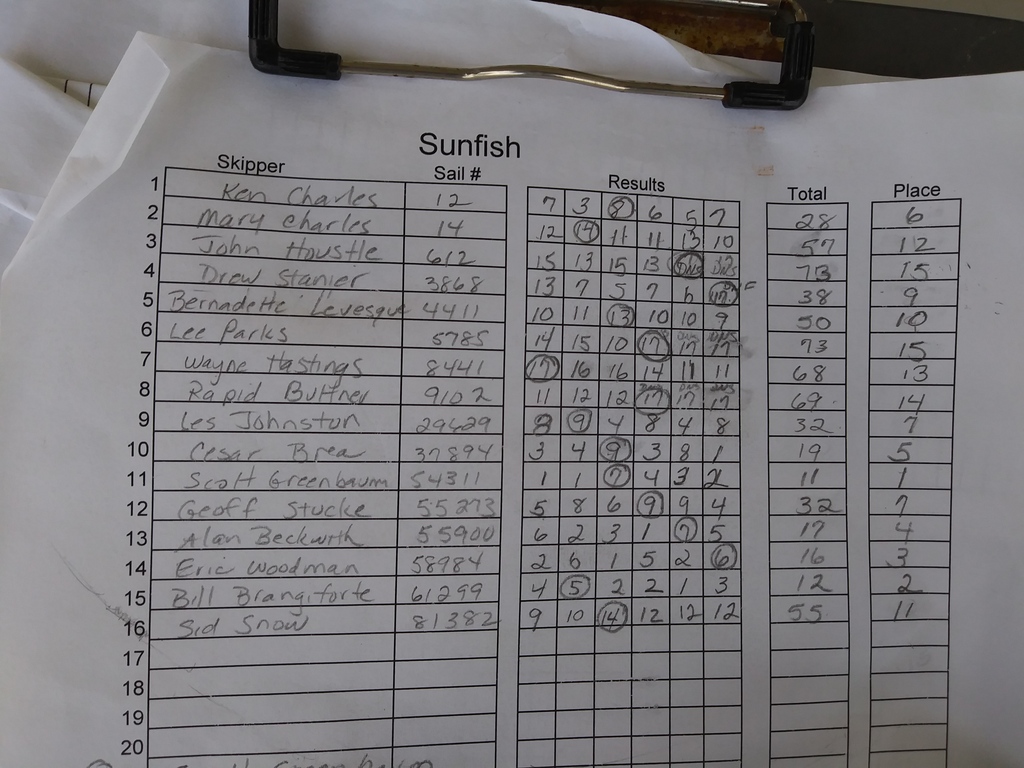 Sunfish
Skipper Sail # Results Total Place
1 Ken Charles 12 7 3 8 6 5 7 28 6
2 Mary Charles 14 12 14 11 11 13 10 57 12
3 John Houstle 612 15 13 15 13 DNS DNS 73 15
4 Drew Stanier 3868 13 7 5 7 6 17 38 9
5 Bernadette Levesque 4411 10 11 13 10 10 9 50 10
6 Lee Parks 5785 14 15 10 17 17 17 73 15
7 Wayne Hastings 8441 17 16 16 14 11 11 68 13
8 Rapid Buttner 9102 11 12 12 17 17 17 69 14
9 Les Johnston 29629 8 9 4 8 4 8 32 7
10 Cesar Brea 37894 3 4 9 3 8 1 19 5
11 Scott Greenbaum 54311 1 1 7 4 3 2 11 1
12 Geoff Stucke 55273 5 8 6 9 9 4 32 7
13 Alan Beckwith 55900 6 2 3 1 7 5 17 4
14 Eric Woodman 58984 2 6 1 5 2 6 16 3
15 Bill Brangiforte 61299 4 5 2 2 1 3 12 2
16 Sid Snow 81382 9 10 14 12 12 12 55 11
17
18
19
20